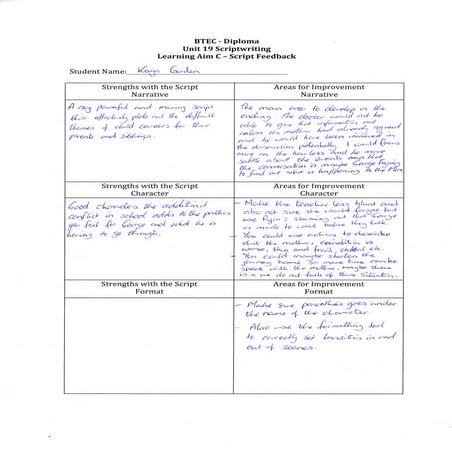 BTEC - Diploma
Unit 19 Scriptwriting
Learning Aim C – Script Feedback
Student Name:
Strengths with the Script
Narrative
A very powerful and moving script
this effectively plots out the difficult
themes of child careers for their
parents and siblings.
Areas for Improvement
Narrative
The main area to develop is the
ending. The doctor would not be
able to give that information out
unless the mother had already agreed
and he would have been involved in
the discussion potentially. I would focus
more on the and be more
subtle about the events so that
the conversation is maybe George trying
to find out what is happening to the Mum
Strengths with the Script
Character
Good characters the additional
conflict in school adds to the pathos
you feel for George and what he is
having to go through.
Areas for Improvement
Character
- Make the teacher less blunt and
also not sure she would forget but
use storming out that George
is made to wait before they talk.
- You could use actions to describe
that the mothers condition is
worse, thin and frail, etc.
- You could maybe shorten the
journey home so more time can be
spent with the mother, maybe there
is a we do not talk of this situation.
Strengths with the Script
Format
Areas for Improvement
Format
- Make sure parenthesis goes under
the name of the character.
- Also use the formatting tool
to correctly set transitions in and
out of scenes.